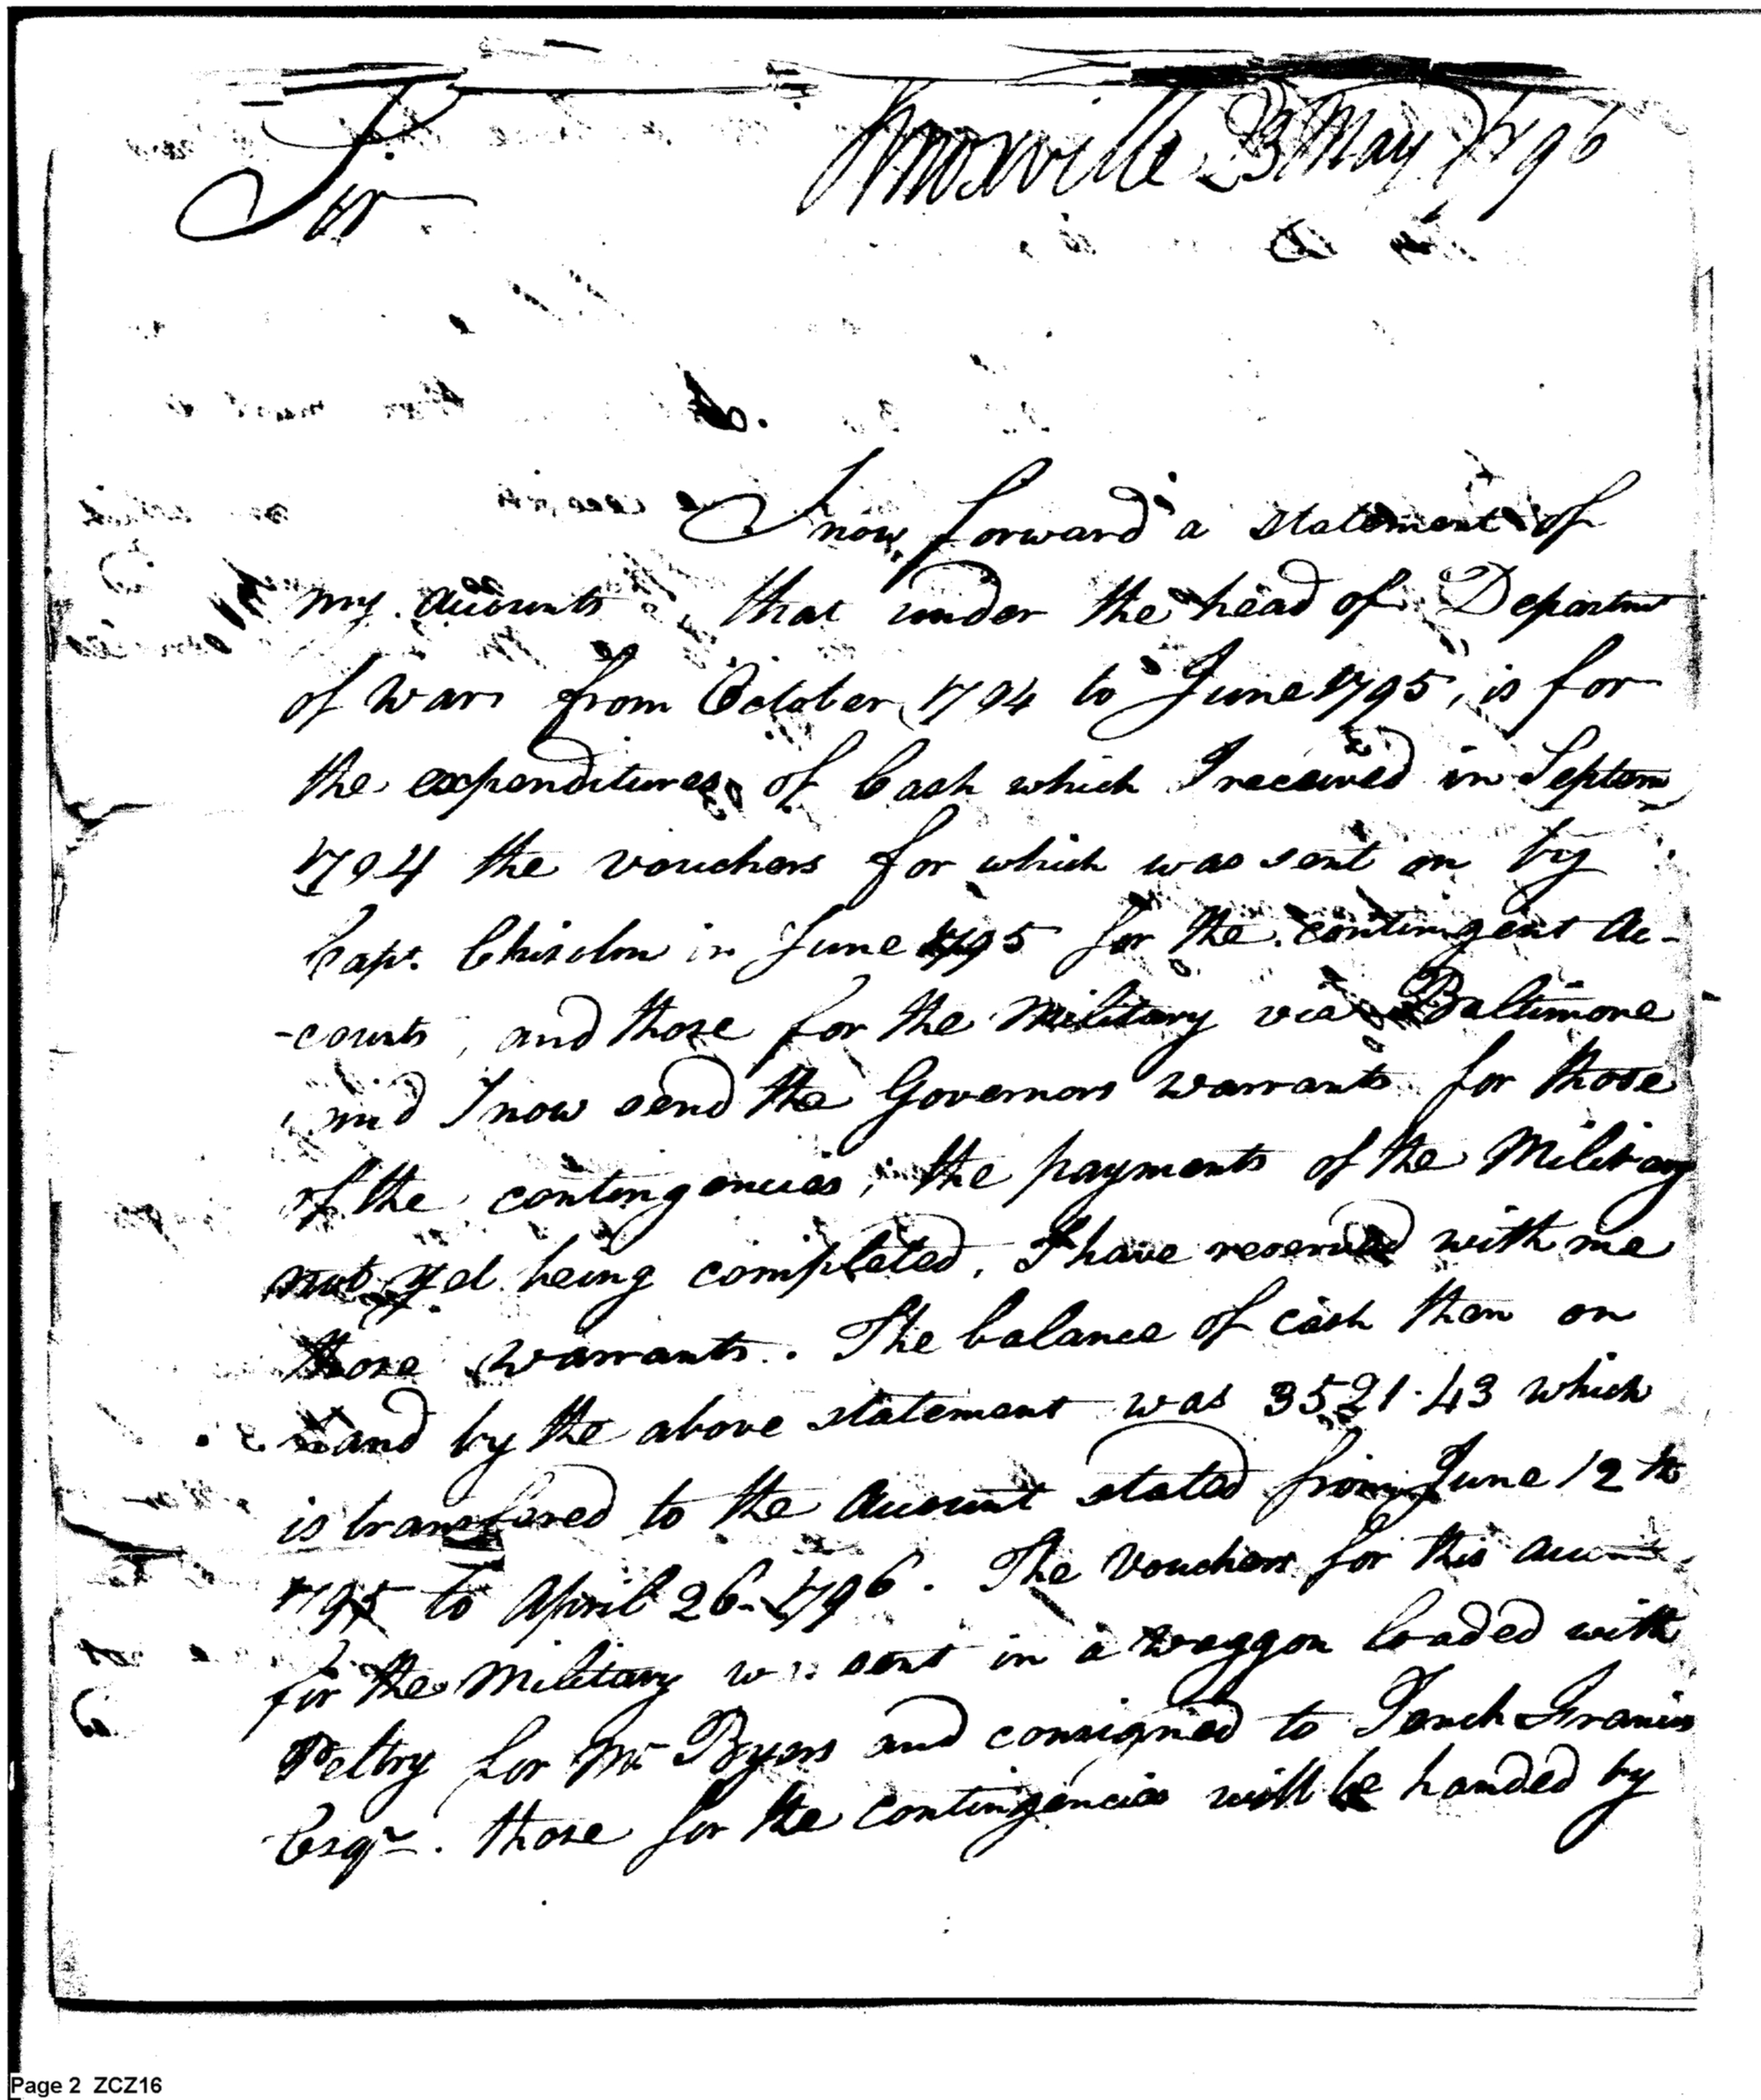 Knoxville 23 May 1796
Sir
I now forward a statement of
my accounts that under the head of Departmt
of War from October 1794 to June 1795, is for
the expenditures of Cash which I received in Septem
1794 the vouchers for which was sent on by
Capt. Chisolm in June 1795 for the contingent Ac-
-counts, and those for the Military via Baltimore
and I now send the Governors warrants for those
of the contingencies, the payments of the Military
not yet being completed, I have reserved with me
those warrants. The balance of cash then on
hand by the above statement was 3521.43 which
is transfered to the account stated from June 12th
1795 to April 26. 1796. The Vouchers for this
for the Military was sent in a waggon loaded with
Peltry for Mr Byers and consigned to Tench Francis
Esqr. those for the contingencies will be handed by
Page 2 ZCZ16